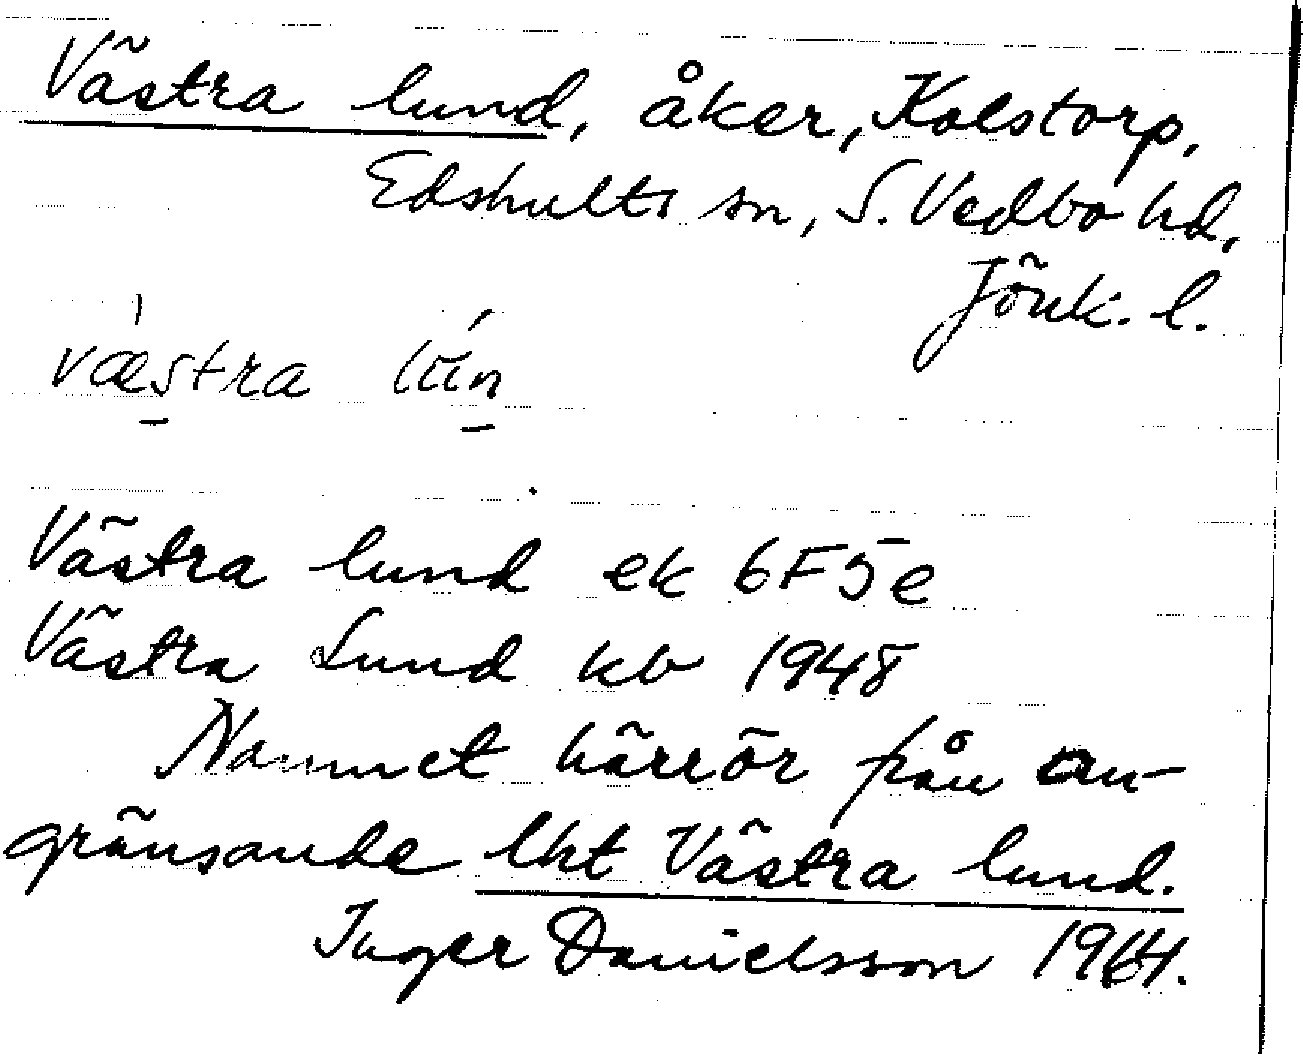 Västra lund, åker, Kolstorp,
Edshults sn, S. Vedbo hd,
Jönk. l.
væstra lún
Västra lund ek 6F5e
Västra Lund kb 1948
Namnet härrör från an-
gränsande lht Västra lund.
Inger Danielsson 1964.